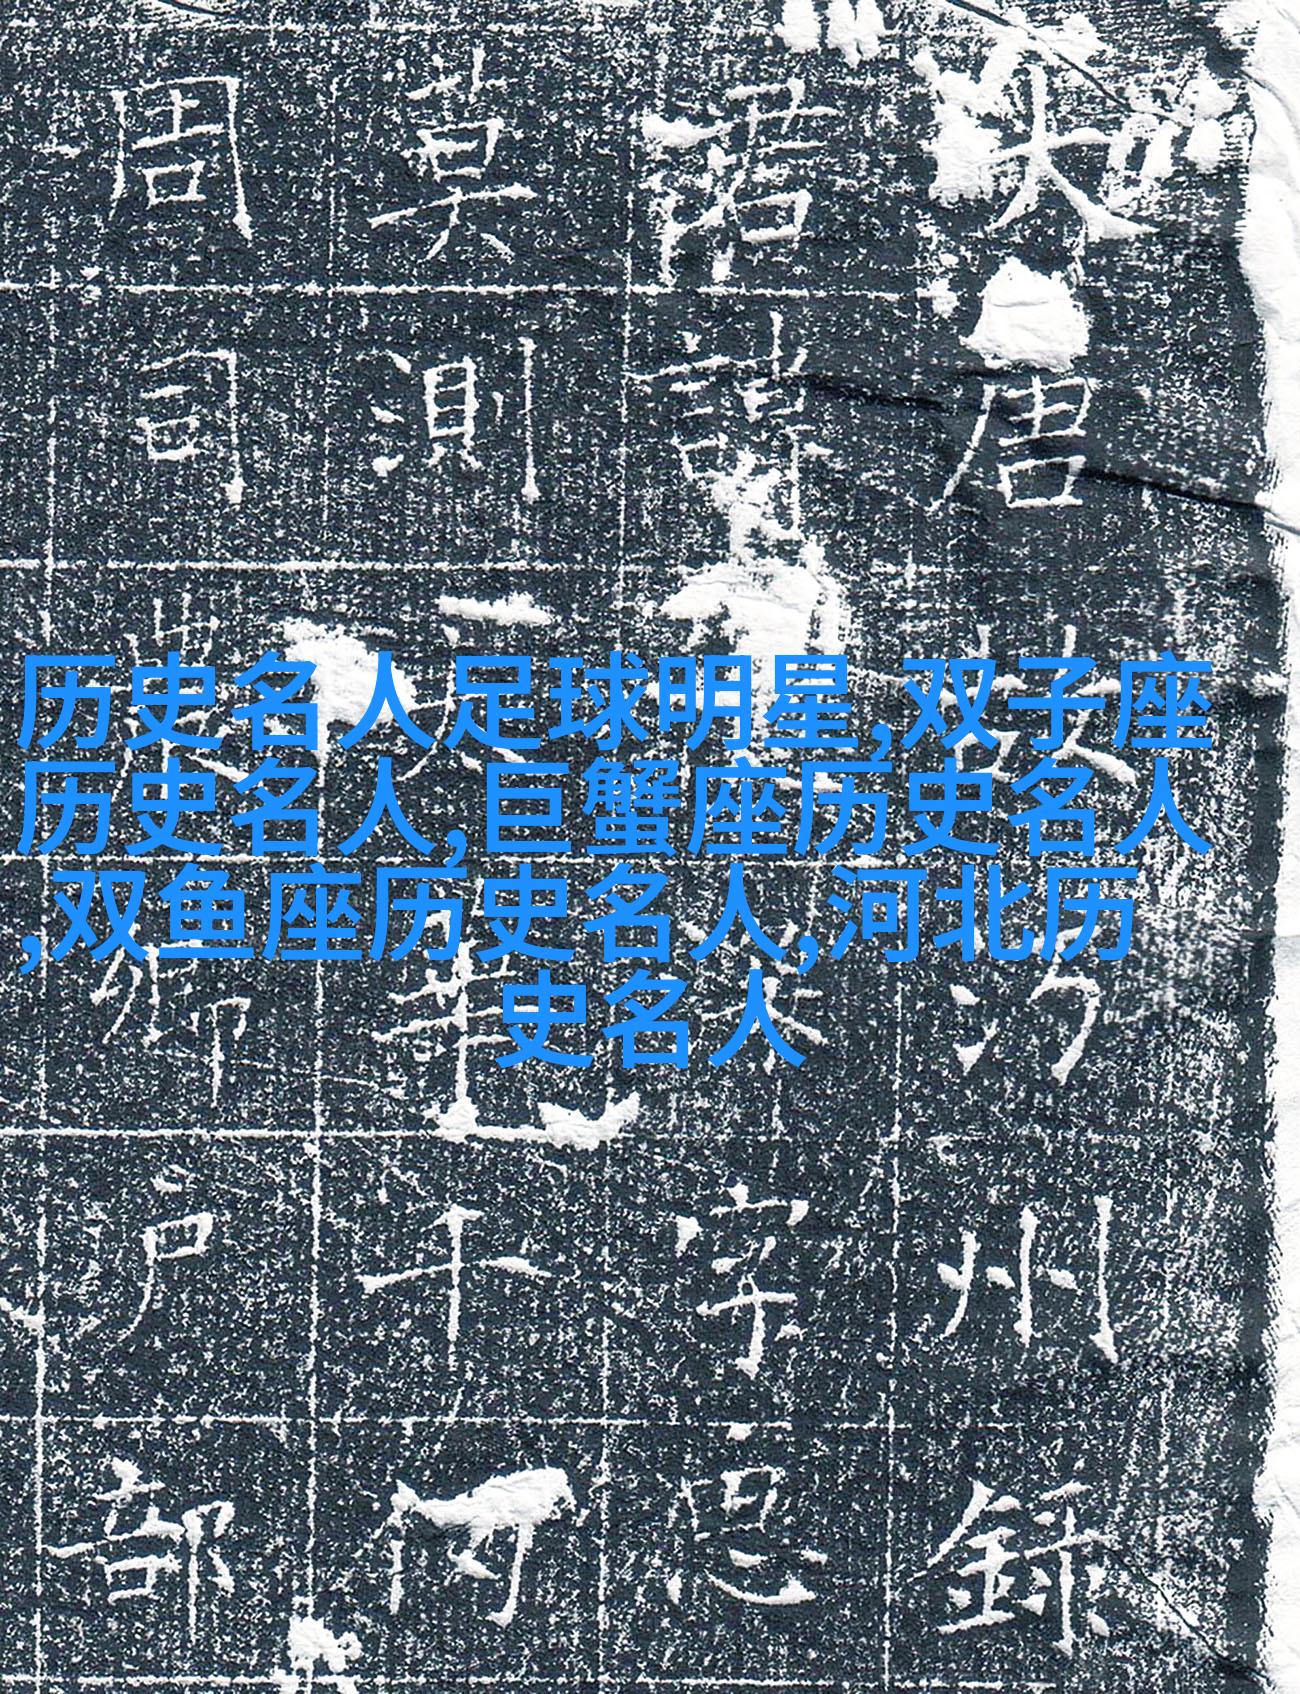 历史名人足球明星,双子座
历史名人,巨蟹座历史名人
,双鱼座历史名人,河北历
史名人
大唐故汾州錄
君諱字思
莫測干
周司部